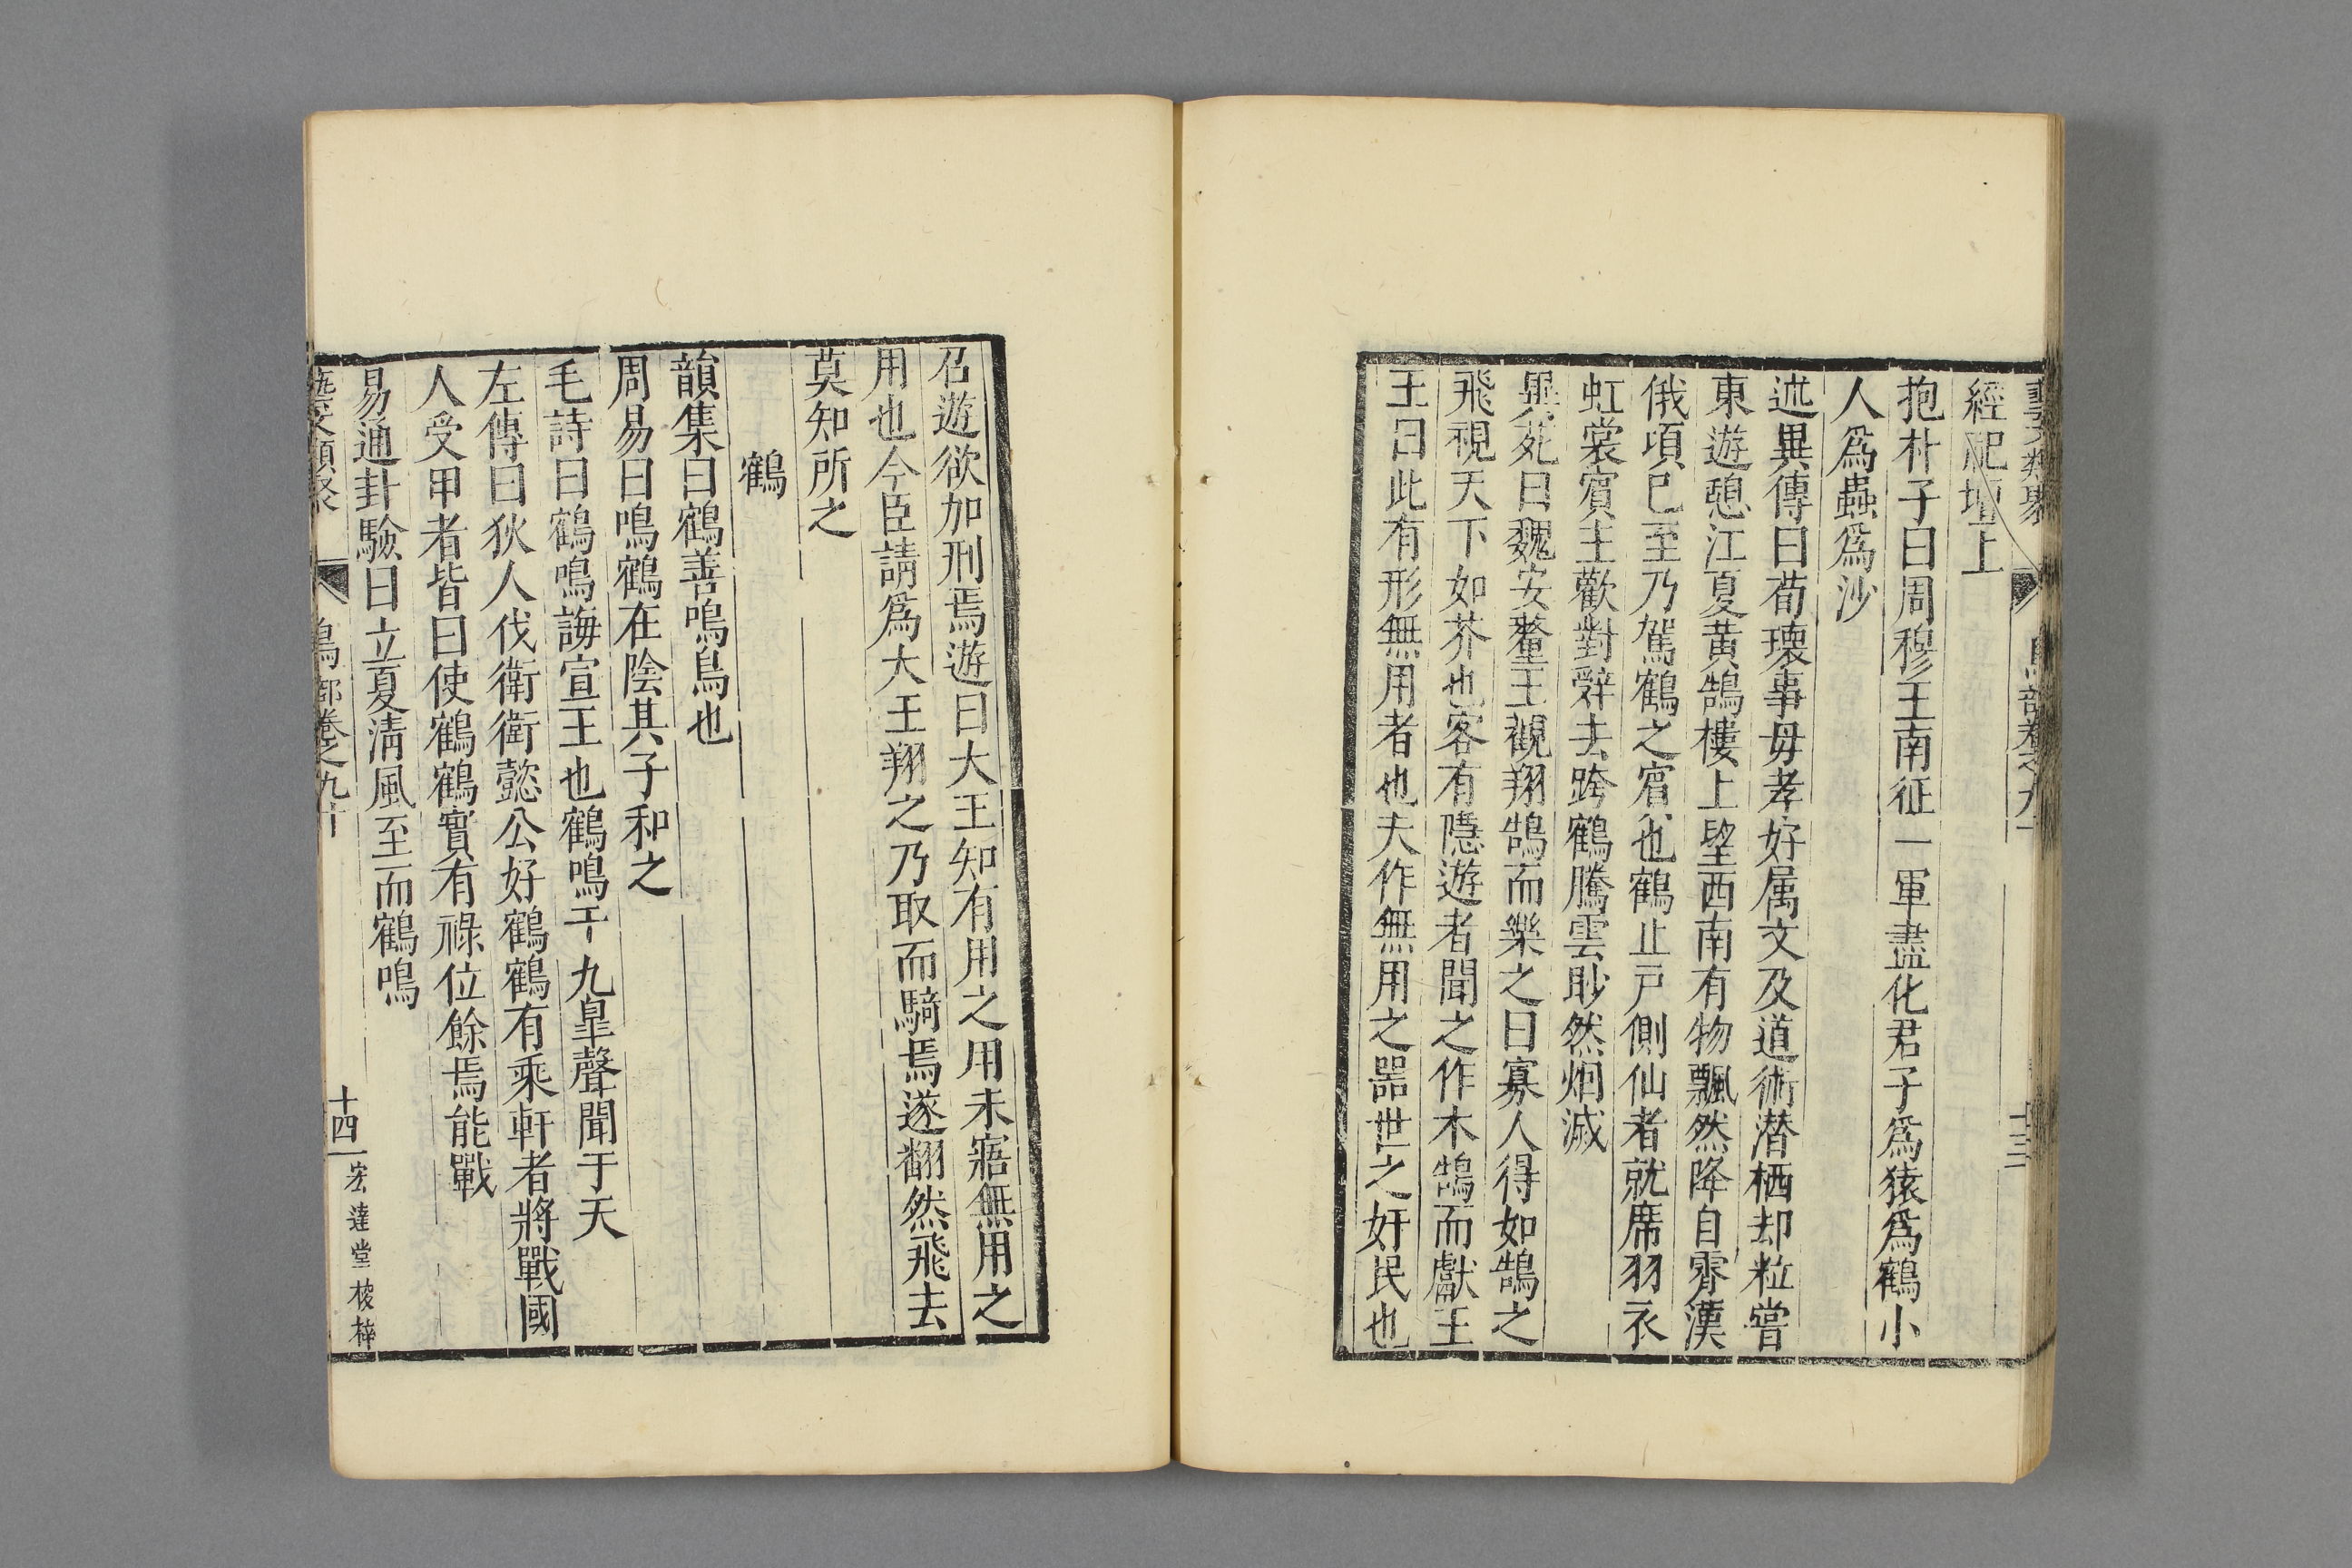 藝文類聚 鳥部卷之九十 十三
經祀壇上
抱朴子曰周穆王南征一軍盡化君子爲猿爲鶴小
人爲蟲爲沙
述異傳曰荀瓌事母孝好属文及道術潜栖却粒嘗
東遊憩江夏黃鵠樓上望西南有物飄然降自霄漢
俄頃已至乃駕鶴之賓也鶴止戸側仙者就席羽衣
虹裳賓主歡對辭去跨鶴騰雲眇然烟滅
異苑曰魏安釐王觀翔鵠而樂之曰寡人得如鵠之
飛視天下如芥也客有隱遊者聞之作木鵠而獻王
王曰此有形無用者也夫作無用之器世之奸民也
召遊欲加刑焉遊曰大王知有用之用未寤無用之
用也今臣請爲大王翔之乃取而騎焉遂翻然飛去
莫知所之
鶴
韻集曰鶴善鳴鳥也
周易曰鳴鶴在陰其子和之
毛詩曰鶴鳴誨宣王也鶴鳴于九皐聲聞于天
左傳曰狄人伐衛衛懿公好鶴鶴有乘軒者將戰國
人受甲者皆曰使鶴鶴實有祿位餘焉能戰
易通卦驗曰立夏淸風至而鶴鳴
藝文類聚 鳥部卷之九十 十四 宏達堂校梓